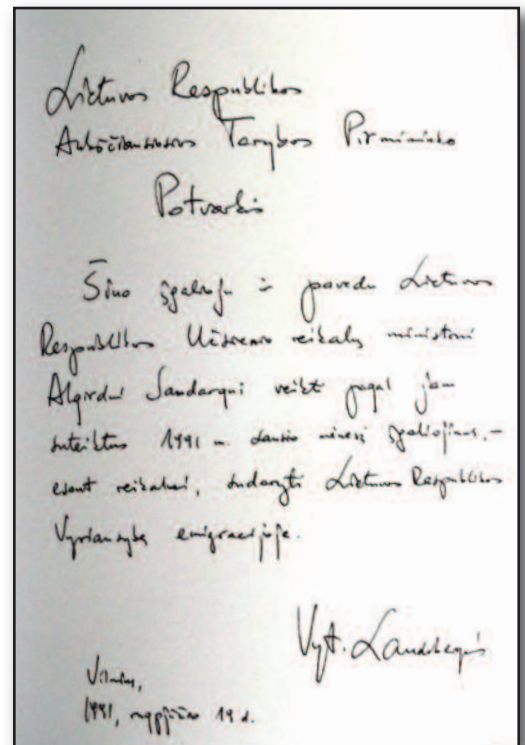 Lietuvos Respublikos
Aukščiausiosios Tarybos Pirmininko
Potvarkis
Šiuo įgalioju ir pavedu Lietuvos
Respublikos Užsienio reikalų ministrui
Algirdui Saudargui veikti pagal jam
suteiktus 1991 m. sausio mėnesį įgaliojimus, –
esant reikalui, sudaryti Lietuvos Respublikos
Vyriausybę emigracijoje.
Vyt. Landsbergis
Vilnius,
1991, rugpjūčio 19 d.